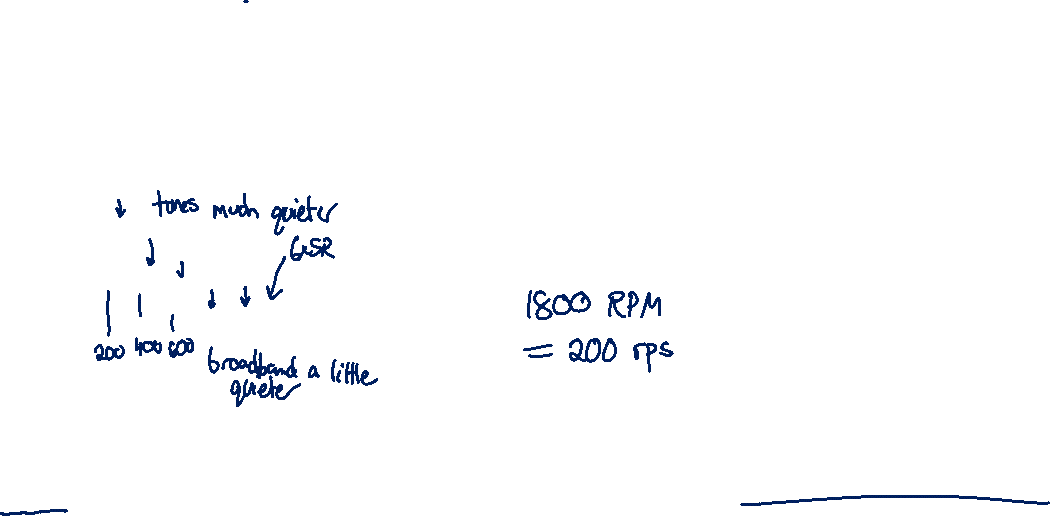 tones much quieter
GSR
200 400 600
broadband a little
quieter
1800 RPM
= 200 rps